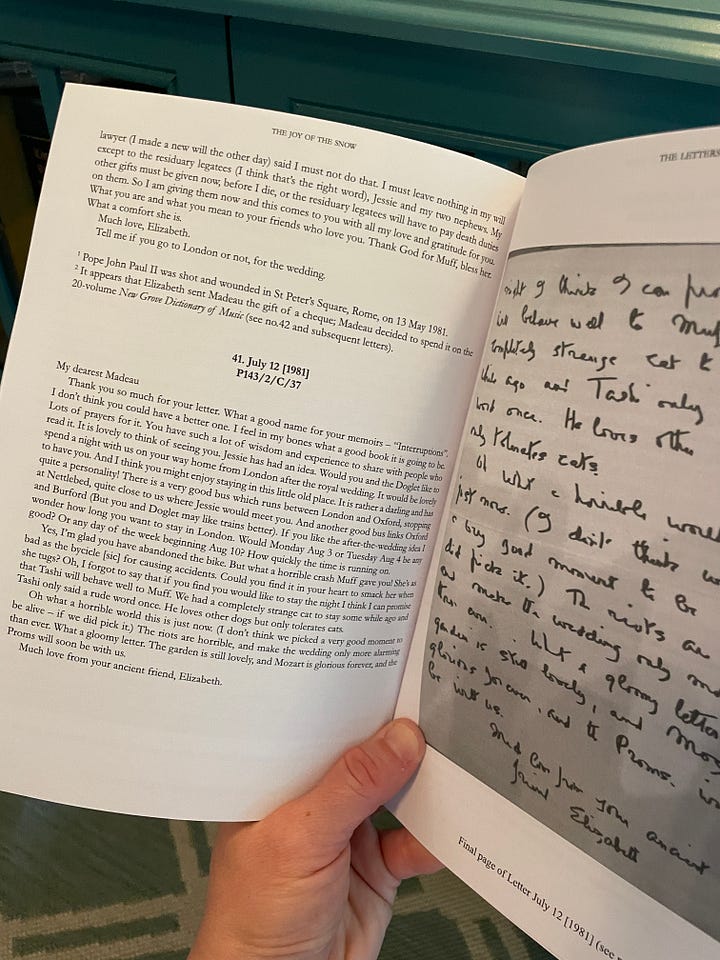 THE JOY OF THE SNOW
lawyer (I made a new will the other day) said I must not do that. I must leave nothing in my will
except to the residuary legatees (I think that's the right word), Jessie and my two nephews. My
other gifts must be given now, before I die, or the residuary legatees will have to pay death duties
on them. So I am giving them now and this comes to you with all my love and gratitude for you.
What you are and what you mean to your friends who love you. Thank God for Muff, bless her.
What a comfort she is.
Much love, Elizabeth.
Tell me if you go to London or not, for the wedding.
¹ Pope John Paul II was shot and wounded in St Peter's Square, Rome, on 13 May 1981.
² It appears that Elizabeth sent Madeau the gift of a cheque; Madeau decided to spend it on the
20-volume New Grove Dictionary of Music (see no.42 and subsequent letters).
41. July 12 [1981]
P143/2/C/37
My dearest Madeau
Thank you so much for your letter. What a good name for your memoirs – "Interruptions".
I don't think you could have a better one. I feel in my bones what a good book it is going to be.
Lots of prayers for it. You have such a lot of wisdom and experience to share with people who
read it. It is lovely to think of seeing you. Jessie has had an idea. Would you and the Doglet like to
spend a night with us on your way home from London after the royal wedding. It would be lovely
to have you. And I think you might enjoy staying in this little old place. It is rather a darling and has
quite a personality! There is a very good bus which runs between London and Oxford, stopping
at Nettlebed, quite close to us where Jessie would meet you. And another good bus links Oxford
and Burford (But you and Doglet may like trains better). If you like the after-the-wedding idea I
wonder how long you want to stay in London. Would Monday Aug 3 or Tuesday Aug 4 be any
good? Or any day of the week beginning Aug 10? How quickly the time is running on.
Yes, I'm glad you have abandoned the bike. But what a horrible crash Muff gave you! She's as
bad as the bycicle [sic] for causing accidents. Could you find it in your heart to smack her when
she tugs? Oh, I forgot to say that if you find you would like to stay the night I think I can promise
that Tashi will behave well to Muff. We had a completely strange cat to stay some while ago and
Tashi only said a rude word once. He loves other dogs but only tolerates cats.
Oh what a horrible world this is just now. (I don't think we picked a very good moment to
be alive – if we did pick it.) The riots are horrible, and make the wedding only more alarming
than ever. What a gloomy letter. The garden is still lovely, and Mozart is glorious forever, and the
Proms will soon be with us.
Much love from your ancient friend, Elizabeth.
THE LETTERS
night I think I can pro
will behave well to Muff
completely strange cat t
while ago and Tashi only
word once. He loves other
only tolerates cats.
Oh what a horrible world
just now. (I don't think we
a very good moment to be
did pick it.) The riots are
and make the wedding only mo
than ever. What a gloomy letter
garden is still lovely, and Moz
glorious for ever, and the Proms
be with us.
Much love from your ancient
friend Elizabeth
Final page of Letter July 12 [1981] (see